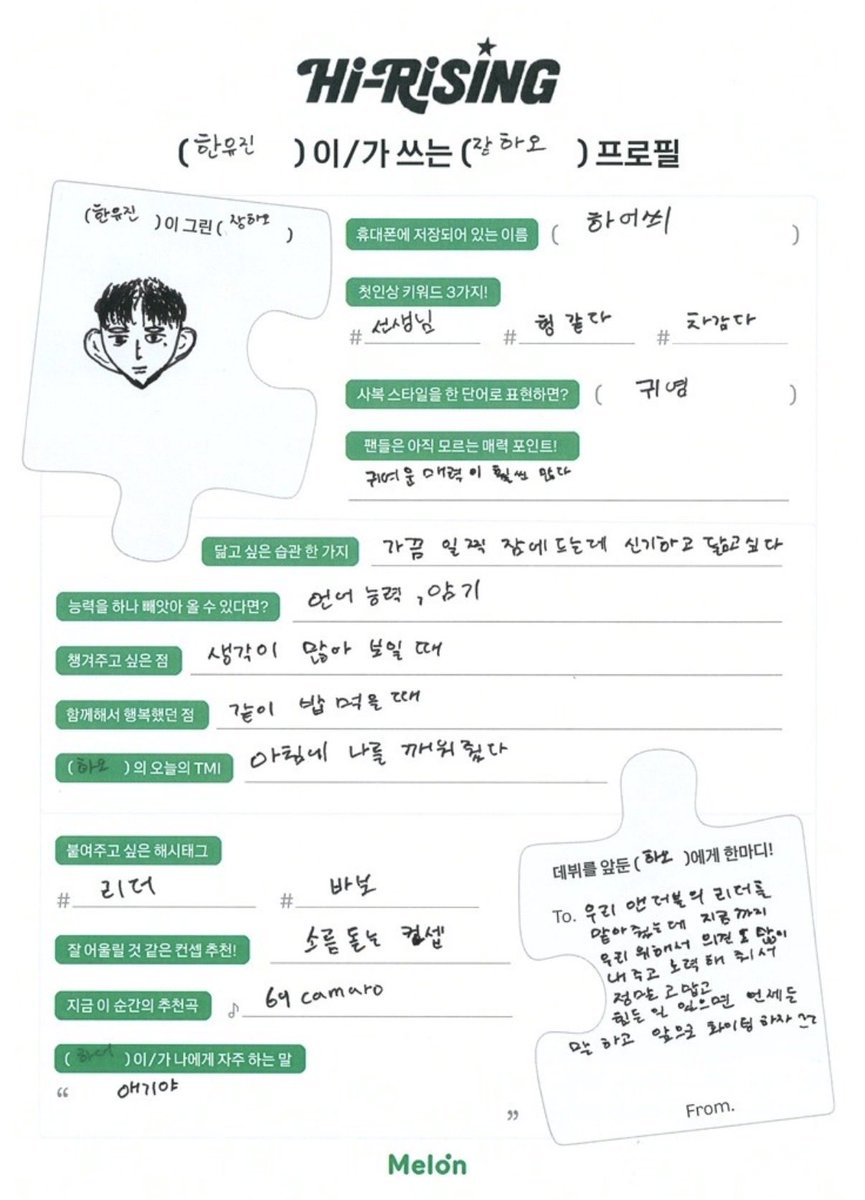 Hi-RiSiNG
(한유진 ) 이/가 쓰는 (장하오 ) 프로필
(한유진 )이 그린 (장하오 )
휴대폰에 저장되어 있는 이름 ( 하어쒸 )
첫인상 키워드 3가지!
# 선생님 # 형 같다 # 차갑다
사복 스타일을 한 단어로 표현하면? ( 귀염 )
팬들은 아직 모르는 매력 포인트!
귀여운 매력이 훨씬 많다
닮고 싶은 습관 한 가지 가끔 일찍 잠에 드는데 신기하고 닮고싶다
능력을 하나 빼앗아 올 수 있다면? 언어 능력, 암기
챙겨주고 싶은 점 생각이 많아 보일 때
함께해서 행복했던 점 같이 밥 먹을 때
(하오 ) 의 오늘의 TMI 아침에 나를 깨워줬다
붙여주고 싶은 해시태그
# 리더 # 바보
잘 어울릴 것 같은 컨셉 추천! 소름 돋는 컨셉
지금 이 순간의 추천곡 ♪ 69 camaro
( 하어 ) 이/가 나에게 자주 하는 말
“ 애기야 ”
데뷔를 앞둔 (하오 )에게 한마디!
To. 우리 앤더블의 리더를
맡아줬는데 지금까지
우리 위해서 의견도 많이
내주고 노력해 줘서
정말 고맙고
힘든 일 있으면 언제든
말 하고 앞으로 화이팅 하자
From.
Melon